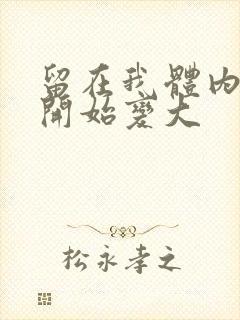 留在我體內
開始變大
松永孝之